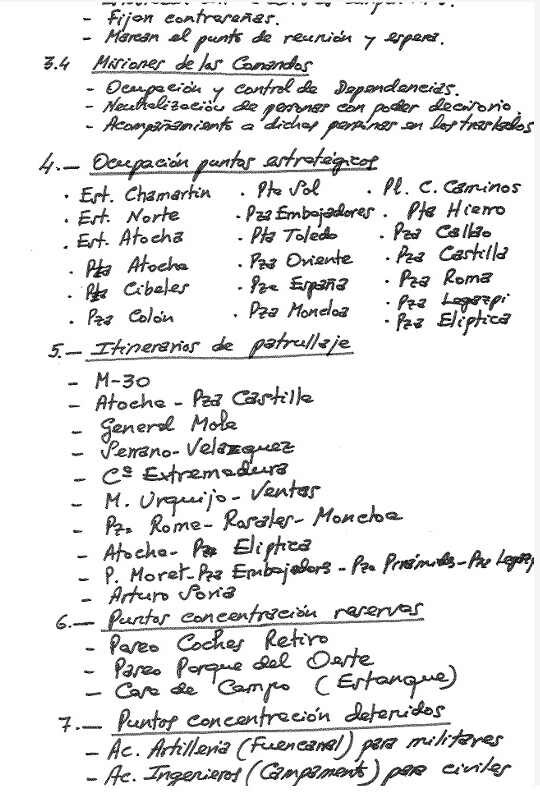 - Fijan contraseñas.
- Marcan el punto de reunión y espera.
3.4 Misiones de los Comandos
- Ocupación y control de Dependencias.
- Neutralización de personas con poder decisorio.
- Acompañamiento a dichas personas en los traslados
4.— Ocupación puntos estratégicos
· Est. Chamartin · Pta Sol · Pl. C. Caminos
· Est. Norte · Pza Embajadores · Pta Hierro
· Est. Atocha · Pta Toledo · Pza Callao
· Pta Atocha · Pza Oriente · Pza Castilla
· Pza Cibeles · Pza España · Pza Roma
· Pza Colón · Pza Moncloa · Pza Legazpi
· Pza Eliptica
5.— Itinerarios de patrullaje
- M-30
- Atocha - Pza Castilla
- General Mola
- Serrano - Velazquez
- Cª Extremadura
- M. Urquijo - Ventas
- Pza Roma - Rosales - Moncloa
- Atocha - Pza Eliptica
- P. Moret - Pza Embajadors - Pza Pirámides - Pza Legazpi
- Arturo Soria
6.— Puntos concentración reservas
- Paseo Coches Retiro
- Paseo Parque del Oeste
- Casa de Campo (Estanque)
7.— Puntos concentración detenidos
- Ac. Artilleria (Fuencarral) para militares
- Ac. Ingenieros (Campamento) para civiles